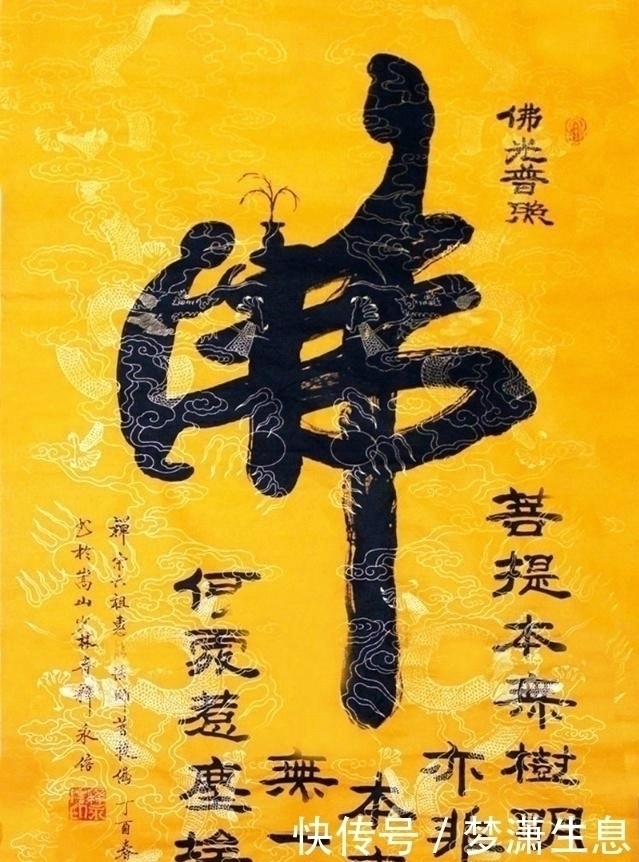 佛光普照
佛
菩提本無樹明
亦非
本
無一
何處惹塵埃
禪宗六祖惠 菩提偈 丁酉春
书於嵩山少林寺釋永
快传号/梦潇生息